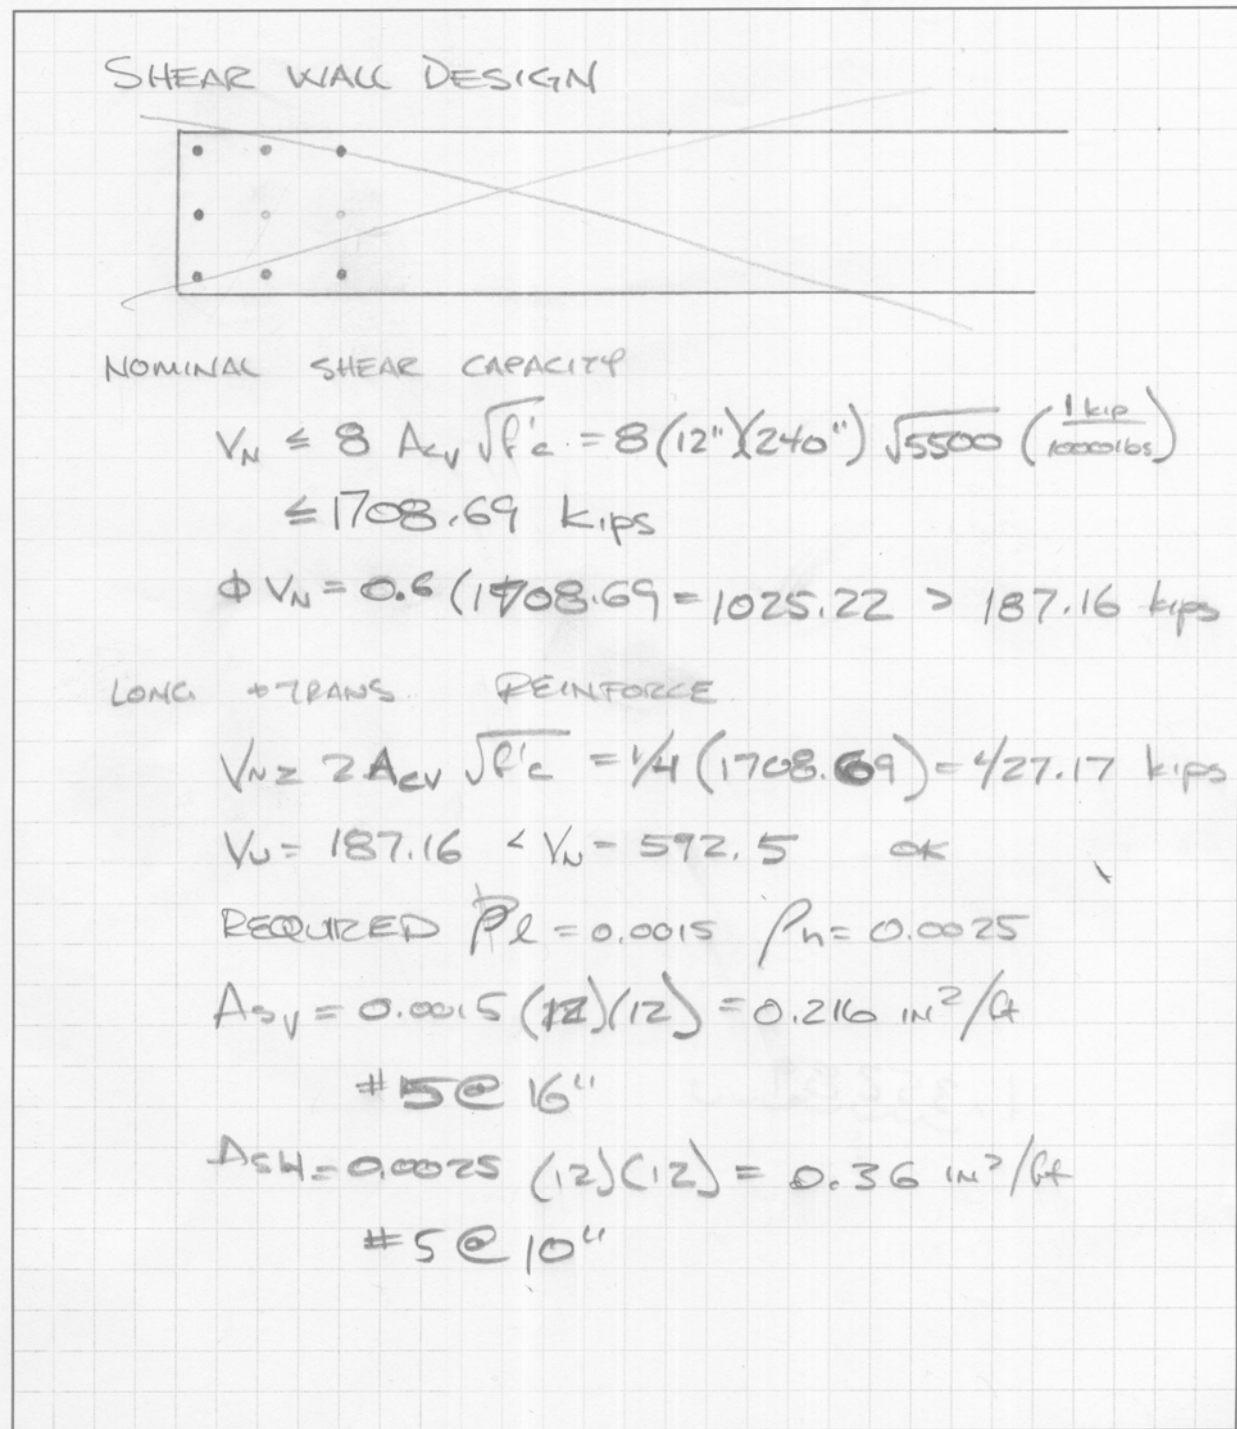 SHEAR WALL DESIGN
NOMINAL SHEAR CAPACITY
V_N ≤ 8 A_cv √f'c = 8 (12")(240") √5500 (1 kip / 1000lbs)
≤ 1708.69 kips
Φ V_N = 0.6 (1708.69 = 1025.22 > 187.16 kips
LONG + TRANS REINFORCE
V_N = 2 A_cv √f'c = 1/4 (1708.69) = 427.17 kips
V_U = 187.16 < V_N = 592.5 OK
REQUIRED ρℓ = 0.0015 ρn = 0.0025
A_sv = 0.0015 (12)(12) = 0.216 IN²/ft
#5 @ 16"
A_sH = 0.0025 (12)(12) = 0.36 IN²/ft
#5 @ 10"